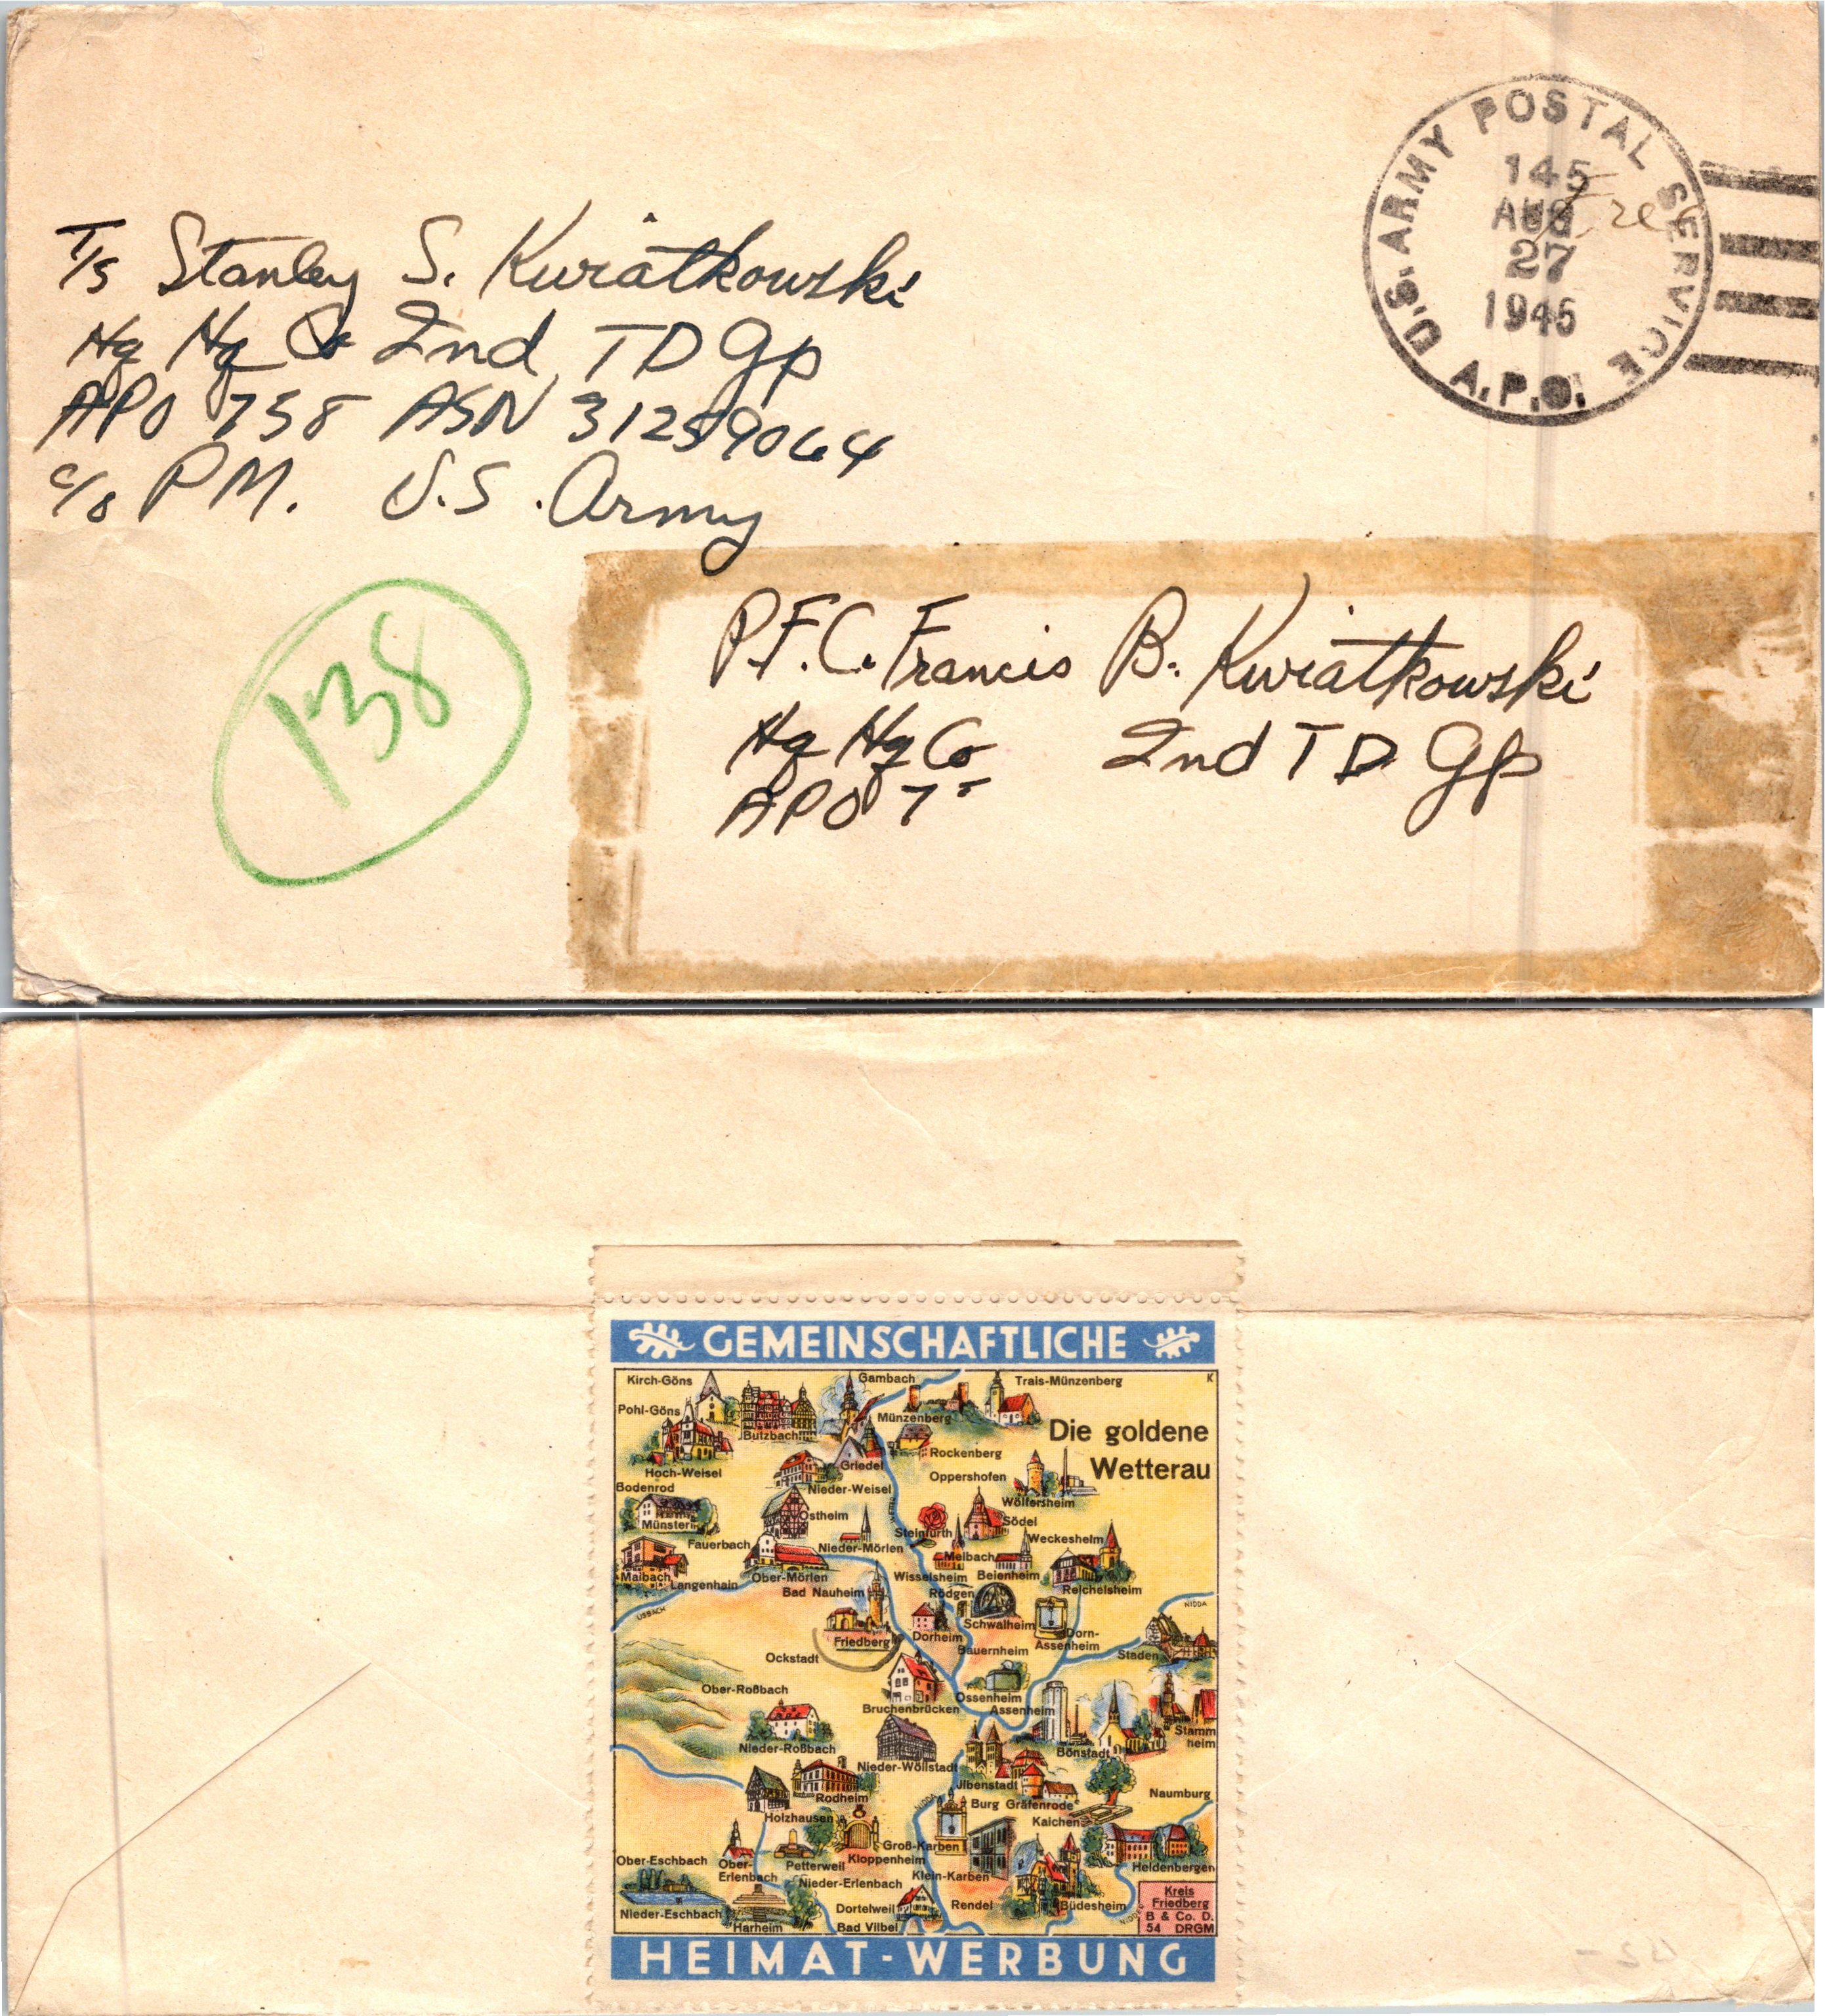 U.S. ARMY POSTAL SERVICE
145
AUG
27
1945
A.P.O.
Free
T/5 Stanley S. Kwiatkowski
Hq Hq Co 2nd TD Gp
APO 758 ASN 31259064
c/o PM. U.S. Army
138
P.F.C. Francis B. Kwiatkowski
Hq Hq Co 2nd TD Gp
APO 7
GEMEINSCHAFTLICHE
Kirch-Göns Gambach Trais-Münzenberg K
Pohl-Göns Münzenberg
Die goldene
Butzbach
Rockenberg
Wetterau
Hoch-Weisel Griedel Oppershofen
Bodenrod Nieder-Weisel Wölfersheim
Münster Ostheim Steinfurth Södel
Fauerbach Nieder-Mörlen Melbach Weckesheim
Maibach Langenhain Ober-Mörlen Wisselsheim Beienheim Reichelsheim
Bad Nauheim Rödgen
USBACH NIDDA
Schwalheim
Friedberg Dorheim Dorn-
Assenheim
Ockstadt Bauernheim Staden
Ober-Roßbach Ossenheim
Bruchenbrücken Assenheim
Stamm
heim
Nieder-Roßbach Bönstadt
Nieder-Wöllstadt
Ilbenstadt
Rodheim Burg Gräfenrode Naumburg
NIDDA
Holzhausen Kaichen
Groß-Karben
Ober-Eschbach Ober-
Erlenbach Petterweil Kloppenheim Heldenbergen
Nieder-Erlenbach Klein-Karben
Nieder-Eschbach Harheim Dortelweil Rendel Büdesheim
NIDDER
Bad Vilbel
Kreis
Friedberg
B & Co. D.
54 DRGM
HEIMAT-WERBUNG